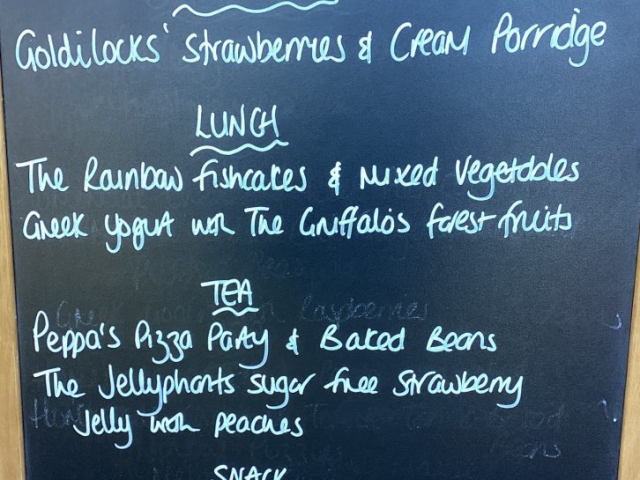 Goldilocks' Strawberries & Cream Porridge
LUNCH
The Rainbow fishcakes & Mixed Vegetables
Greek yogurt with The Gruffalo's forest fruits
TEA
Peppa's Pizza Party & Baked Beans
The Jellyphants sugar free strawberry
Jelly with peaches
SNACK